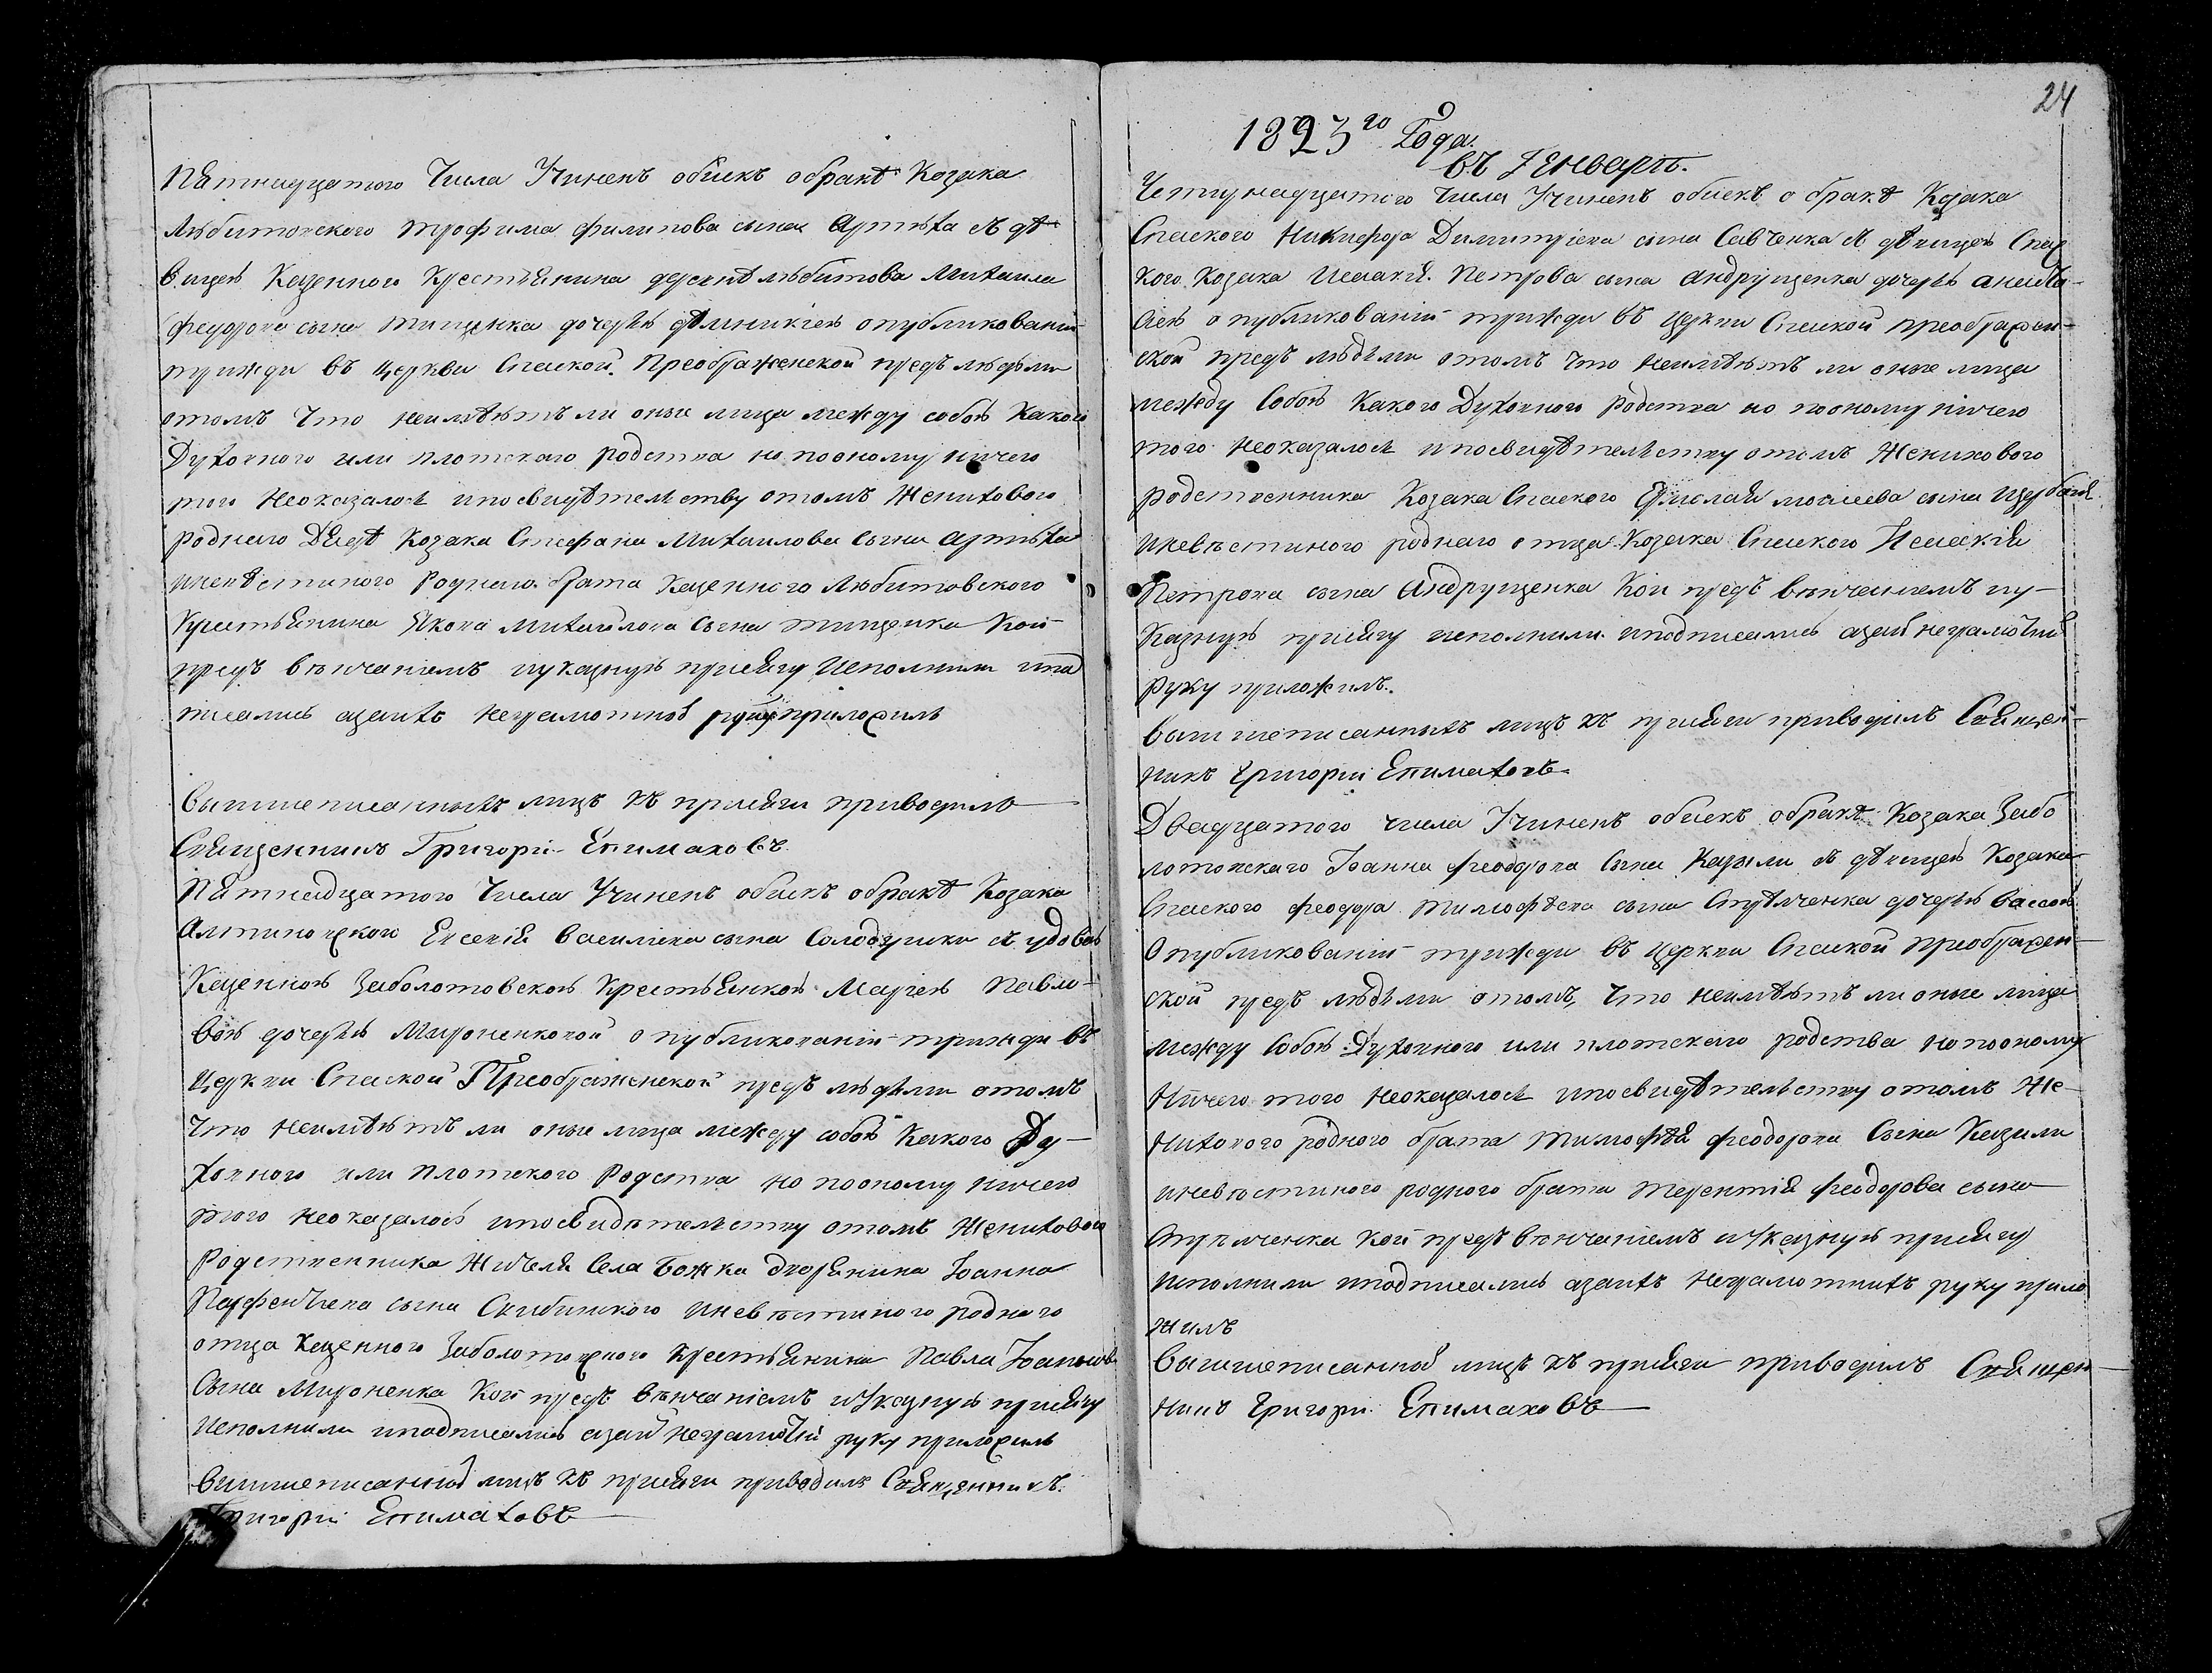 Пятнадцатого Числа Учиненъ обыскъ обракѣ Козака
Любитовского трофима филипова сына Артюха съ дѣ-
вицею Казенного Крестьянина деревнѣ любитова Михаила
Федорова сына тищенка дочерью опубликованіи
трижди въ Церкви Спаской Преображенской предъ людьми
отомъ Что неимѣютъ ли оные лица между собою Какого
Духовного или плотскаго родства но пооному ничего
того Неоказалось ипосвидѣтелству отомъ Женихового
родного Дяди Козака Стефана Михаилова сына артюха
иневѣстиного Родного брата Казенного Любитовского
Крестьянина Якова Михайлова Сына тищенка Кои
предъ вѣнчаніемъ иуказную присягу Исполнили ипод
писались азаихъ неграмотнихъ руку приложилъ
Вышшеписанныхъ лицъ къ присяги приводилъ
Священникъ Григорій Епимаховъ
Пятнадцатого Числа Учиненъ обыскъ обракѣ Козака
Алтиновской Евсевія василіева сына Солодушки съ удовою
Казенною Заболотовскою Крестьянкою Маріею Павло-
вою дочерью Мироненковой опубликованіи трижди въ
Церкви Спаской Преображенской предъ людьми отомъ
Что неимѣютъ ли оные лица между собой Какого Ду-
ховного или плотского Родства но пооному ничего
того неоказалось ипосвидѣтелству отомъ Женихового
Родственника Жителя Села Божка дворянина Іоанна
сына Скибицкого Иневѣстиного родного
отца Казенного Заболотовского Крестьянина Павла Іоанова
Сына Мироненка Кои предъ вѣнчаніемъ иУказную присягу
Исполнили иподписались азаихъ неграмотнихъ руку приложилъ
Вышшеписанной лицъ къ присяги приводилъ Священникъ
Григорій Епимаховъ
24
1823го Года.
въ Генварѣ.
Четирнадцатого Числа Учиненъ обыскъ о бракѣ Козака
Спаского Никифора Димитріева сына Савченка съ дѣвицею Спас
кого Козака Исаакія Петрова сына андрущенка дочерью анаста-
сіею опубликованіи трижди въ Церкви Спаской преображен-
ской предъ людьми отомъ Что неимѣютъ ли оные лица
между Собою Какого Духовного родства но пооному ничего
того неоказалось ипосвидѣтелству отомъ Женихового
родственника Козака Спаского моисеева сына
иневѣстиного родного отца Козака Спаского Исаакія
Петрова сына Андрущенка Кои предъ вѣнчаніемъ иу-
Казную присягу исполнили иподписались азаихъ неграмотнихъ
руку приложилъ.
вышшеписанныхъ лицъ къ присяги приводилъ Священ-
никъ Григорій Епимаховъ
Двадцатого числа Учиненъ обыскъ обракѣ Козака Забо
лотовскаго Іоанна феодорова Сына съ дѣвицею Козака
Спаского феодора тимофѣева сына Стрѣлченка дочерью вассою
Опубликованіи трижди въ Церкви Спаской преображен-
ской предъ людьми отомъ, Что неимѣютъ ли оные лица
между Собою Духовного или плотскаго родства но пооному
Ничего того неоказалось ипосвидѣтельству отомъ Же-
нихового родного брата тимофѣя феодорова Сына
иневѣстиного родного брата терентія феодорова сына
Стрѣлченка Кои предъ вѣнчаніемъ иУказную присягу
исполнили иподписались азаихъ неграмотнихъ руку прило
жилъ
Вышшеписанной лицъ къ присяги приводилъ Священ-
никъ Григори Епимаховъ